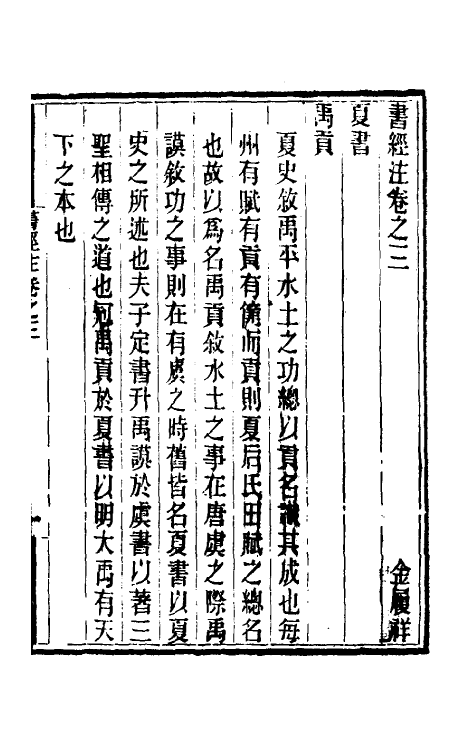 書經注卷之三
金履祥
夏書
禹貢
夏史敘禹平水土之功總以貢名識其成也每
州有賦有貢有篚而貢則夏后氏田賦之總名
也故以爲名禹貢敘水土之事在唐虞之際禹
謨敘功之事則在有虞之時舊皆名夏書以夏
史之所述也夫子定書升禹謨於虞書以著三
聖相傳之道也冠禹貢於夏書以明大禹有天
下之本也
書經注卷之三
一